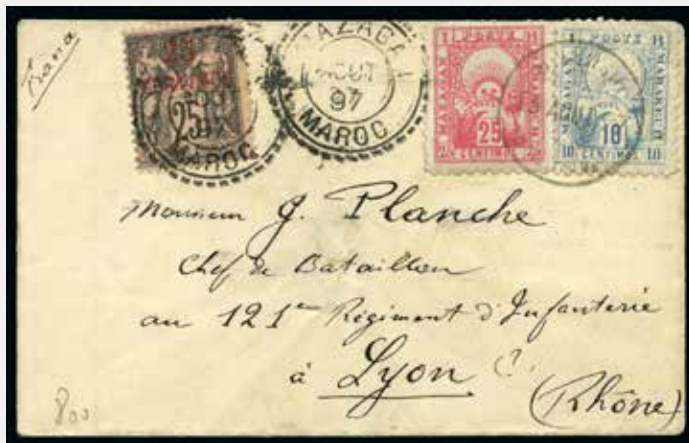 Franco
25
CENTIMOS
25
MAROC
MAZAGAN
97
MAROC
POSTE
MAZAGAN
MARAKECH
25 CENTIMOS
POSTE
MAZAGAN
MARAKECH
10
10 CENTIMOS 10
Monsieur J. Planche
Chef de Bataillon
au 121e Régiment d'Infanterie
à Lyon (?)
(Rhône)
800